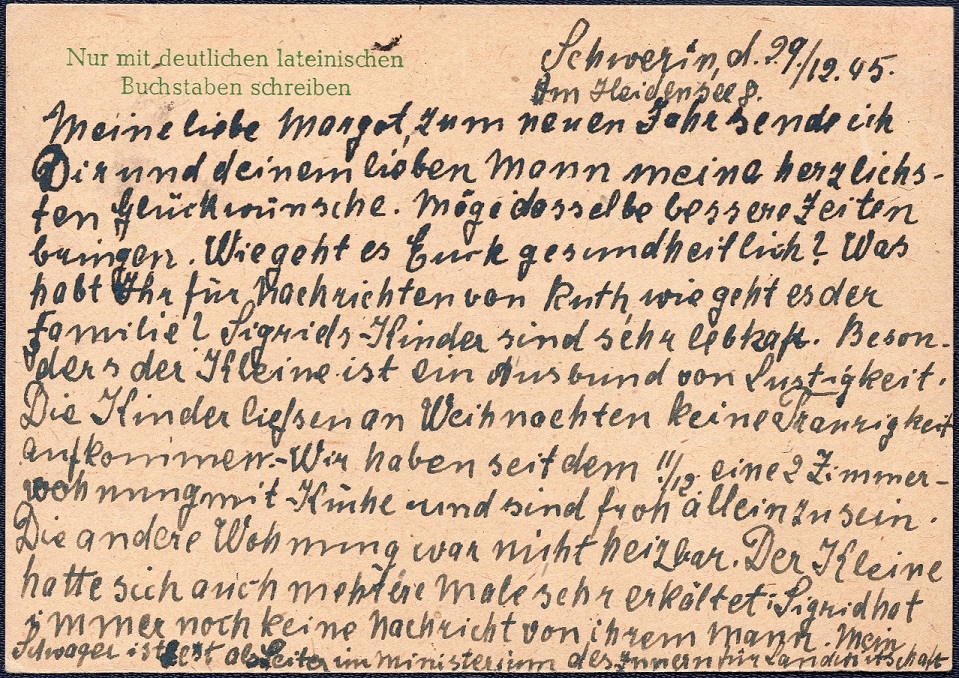 Nur mit deutlichen lateinischen
Buchstaben schreiben
Schwerin, d. 29/12. 45.
Am Heidensee 8.
Meine liebe Margot, zum neuen Jahr sende ich
Dir und deinem lieben Mann meine herzlichs-
ten Glückwünsche. Möge dasselbe bessere Zeiten
bringen. Wie geht es Euch gesundheitlich? Was
habt Ihr für Nachrichten von Ruth, wie geht es der
Familie? Sigrids Kinder sind sehr lebhaft. Beson-
ders der Kleine ist ein Ausbund von Lustigkeit.
Die Kinder liessen an Weihnachten keine Traurigkeit
aufkommen.- Wir haben seit dem 11/12. eine 2 Zimmer-
wohnung mit Küche und sind froh allein zu sein.
Die andere Wohnung war nicht heizbar. Der Kleine
hatte sich auch mehrere Male sehr erkältet. Sigrid hat
immer noch keine Nachricht von ihrem Mann. Mein
Schwager ist jetzt als Leiter im Ministerium des Innern für Landwirtschaft